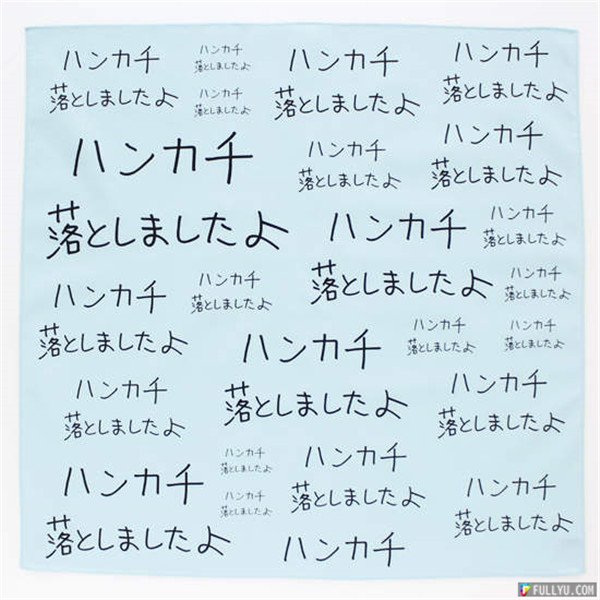 ハンカチ
落としましたよ
ハンカチ
落としましたよ
ハンカチ
落としましたよ
ハンカチ
落としましたよ
ハンカチ
落としましたよ
ハンカチ
落としましたよ
ハンカチ
落としましたよ
ハンカチ
落としましたよ
ハンカチ
落としましたよ
ハンカチ
落としましたよ
ハンカチ
落としましたよ
ハンカチ
落としましたよ
ハンカチ
落としましたよ
ハンカチ
落としましたよ
ハンカチ
落としましたよ
ハンカチ
落としましたよ
ハンカチ
落としましたよ
ハンカチ
落としましたよ
ハンカチ
落としましたよ
ハンカチ
落としましたよ
ハンカチ
落としましたよ
ハンカチ
落としましたよ
ハンカチ
落としましたよ
ハンカチ
落としましたよ
ハンカチ
FULLYU.COM